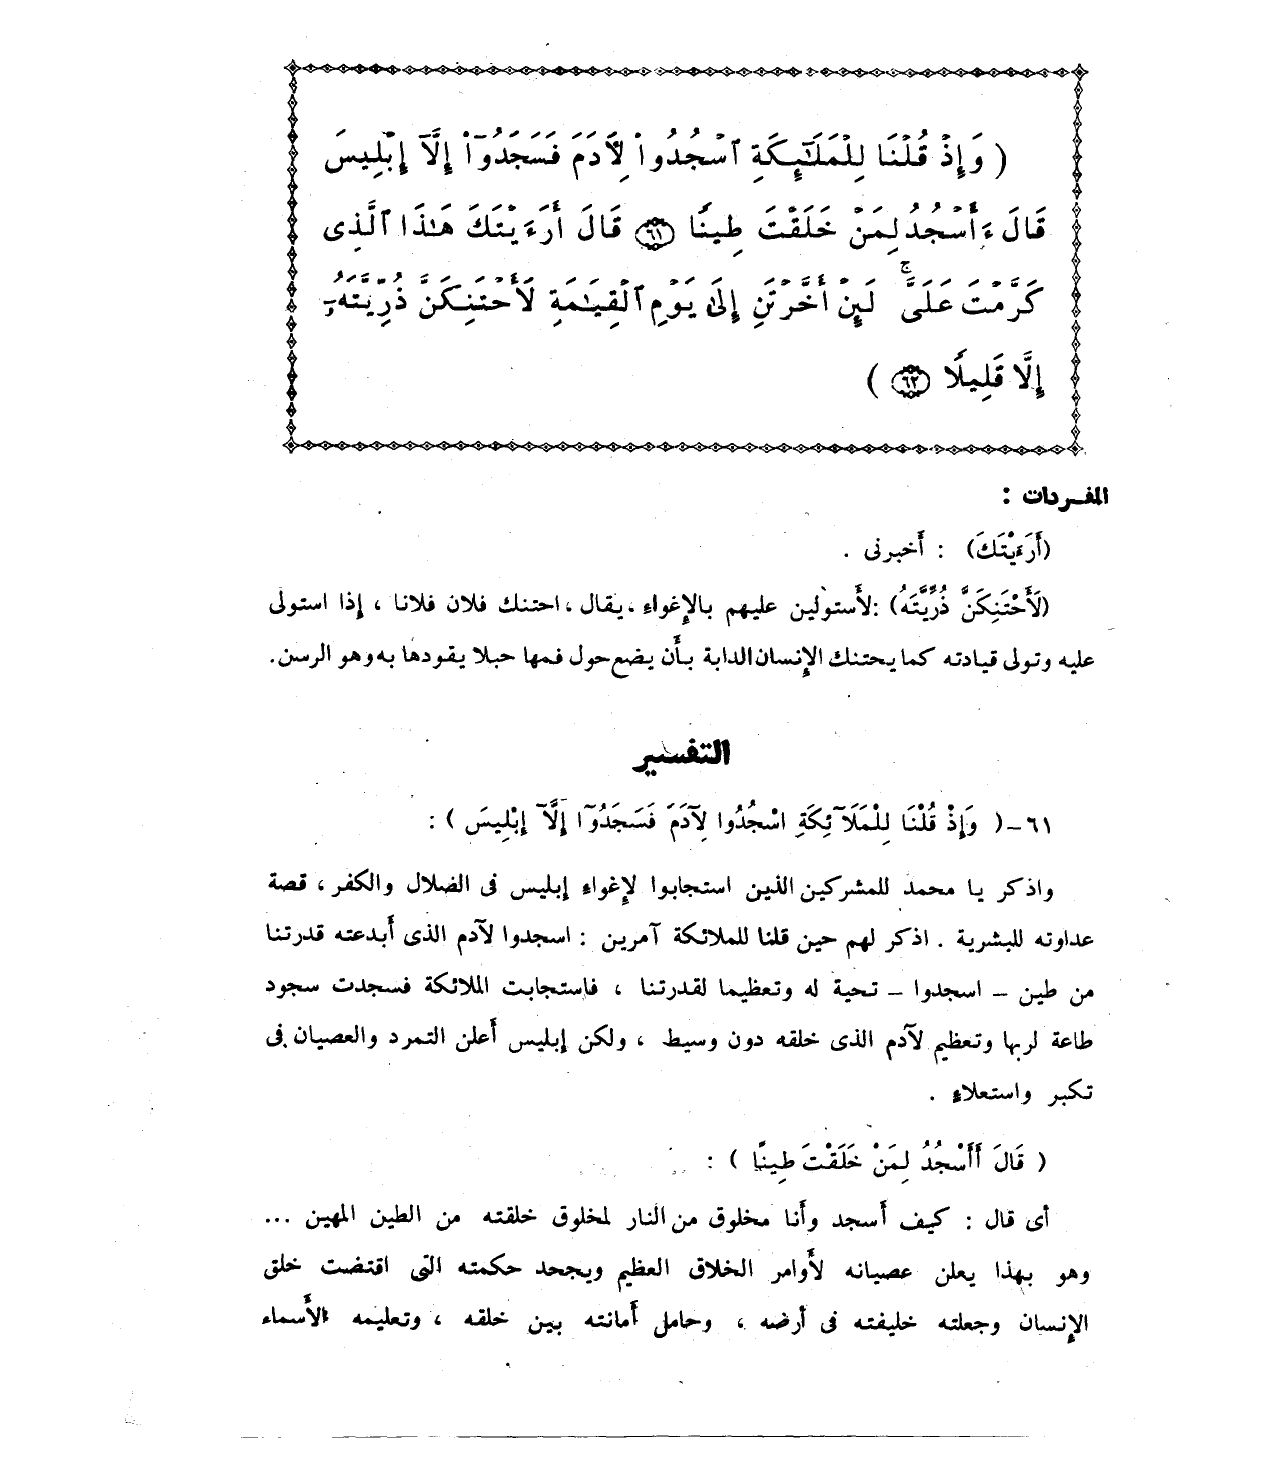 ( وَإِذْ قُلْنَا لِلْمَلَٰٓئِكَةِ ٱسْجُدُوا۟ لِـَٔادَمَ فَسَجَدُوٓا۟ إِلَّآ إِبْلِيسَ
قَالَ ءَأَسْجُدُ لِمَنْ خَلَقْتَ طِينًا ٦١ قَالَ أَرَءَيْتَكَ هَٰذَا ٱلَّذِى
كَرَّمْتَ عَلَىَّ ۚ لَئِنْ أَخَّرْتَنِ إِلَىٰ يَوْمِ ٱلْقِيَٰمَةِ لَأَحْتَنِكَنَّ ذُرِّيَّتَهُۥٓ
إِلَّا قَلِيلًا ٦٢ )
المفـردات :
(أَرَءَيْتَكَ) : أخبرنى .
(لَأَحْتَنِكَنَّ ذُرِّيَّتَهُ) :لأستولين عليهم بالإغواء ، يقال ، احتنك فلان فلانا ، إذا استولى
عليه وتولى قيادته كما يحتنك الإنسان الدابة بأن يضع حول فمها حبلا يقودها به وهو الرسن.
التفسير
٦١ـ( وَإِذْ قُلْنَا لِلْمَلَآئِكَةِ اسْجُدُوا لِآدَمَ فَسَجَدُوٓا إِلَّآ إِبْلِيسَ ) :
واذكر يا محمد للمشركين الذين استجابوا لإغواء إبليس فى الضلال والكفر ، قصة
عداوته للبشرية . اذكر لهم حين قلنا للملائكة آمرين : اسجدوا لآدم الذى أبدعته قدرتنا
من طين ـ اسجدوا ـ تحية له وتعظيما لقدرتنا ، فاستجابت الملائكة فسجدت سجود
طاعة لربها وتعظيم لآدم الذى خلقه دون وسيط ، ولكن إبليس أعلن التمرد والعصيان فى
تكبر واستعلاء .
( قَالَ أَأَسْجُدُ لِمَنْ خَلَقْتَ طِينًا ) :
أى قال : كيف أسجد وأنا مخلوق من النار لمخلوق خلقته من الطين المهين ...
وهو بهذا يعلن عصيانه لأوامر الخلاق العظيم ويجحد حكمته التى اقتضت خلق
الإنسان وجعلته خليفته فى أرضه ، وحامل أمانته بين خلقه ، وتعليمه الأسماء